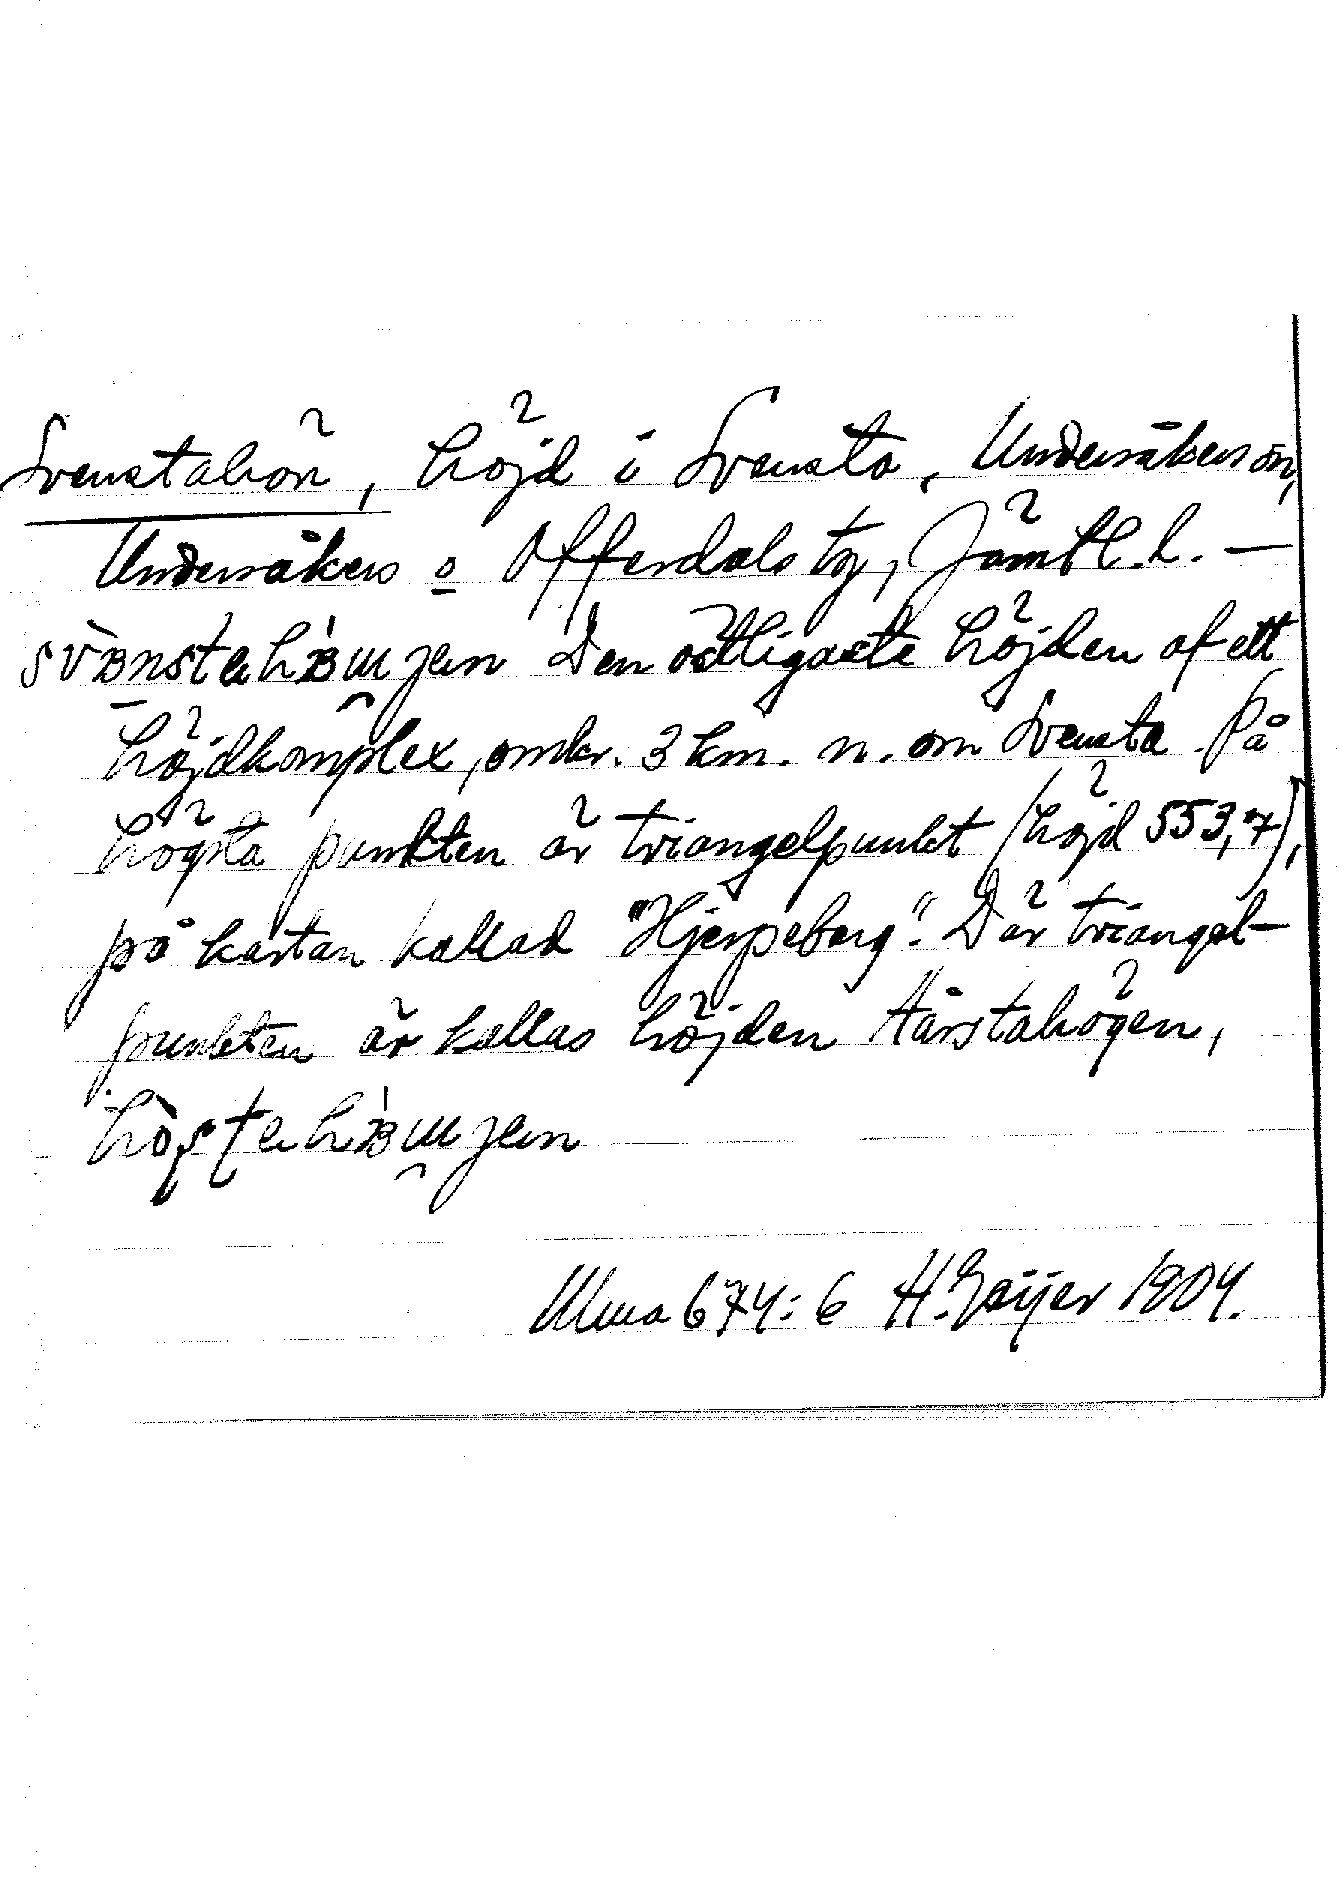 Svenstahön, höjd i Svensta, Undersåkers sn,
Undersåkers o Offerdals tg, Jämtl. l. —
Den östligaste höjden af ett
höjdkomplex, omkr. 3 km. n. om Svensta. På
högsta punkten är triangelpunkt (höjd 553,7),
på kartan kallad "Hjerpeberg". Där triangel-
punkten är kallas höjden Hårstahögen,
Uma 674:6 H. Geijer 1904.